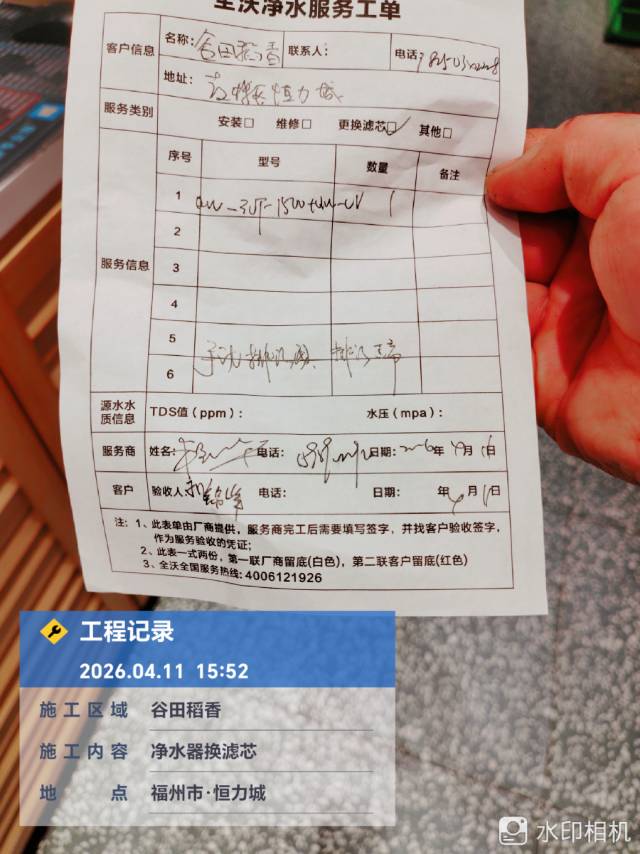 全沃净水服务工单
客户信息 名称: 谷田稻香 联系人: 电话:
地址: 恒力城
服务类别 安装□ 维修□ 更换滤芯☑ 其他□
服务信息 序号 型号 数量 备注
1 1
2
3
4
5
6
源水水质信息 TDS值(ppm): 水压(mpa):
服务商 姓名: 电话: 日期: 2026年4月11日
客户 验收人: 电话: 日期: 年4月11日
注: 1、此表单由厂商提供，服务商完工后需要填写签字，并找客户验收签字，
作为服务验收的凭证;
2、此表一式两份，第一联厂商留底(白色)，第二联客户留底(红色)
3、全沃全国服务热线: 4006121926
工程记录
2026.04.11 15:52
施工区域 谷田稻香
施工内容 净水器换滤芯
地点 福州市·恒力城
水印相机